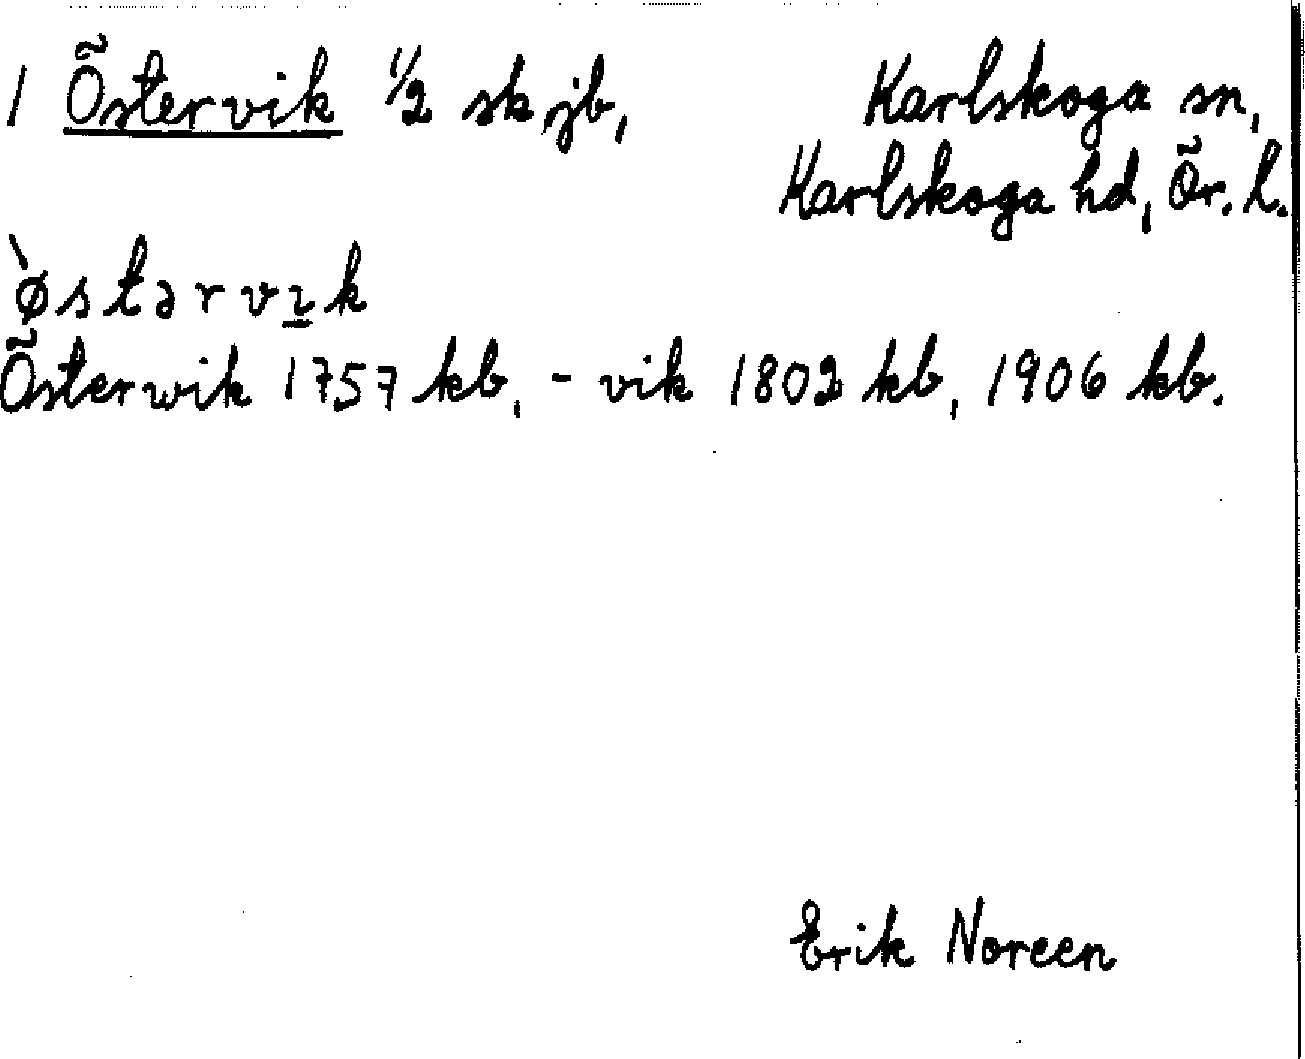 1 Östervik 1/2 sk jb, Karlskoga sn,
Karlskoga hd, Ör. l.
`østərvı̲k
Österwik 1757 kb, - vik 1802 kb, 1906 kb.
Erik Noreen